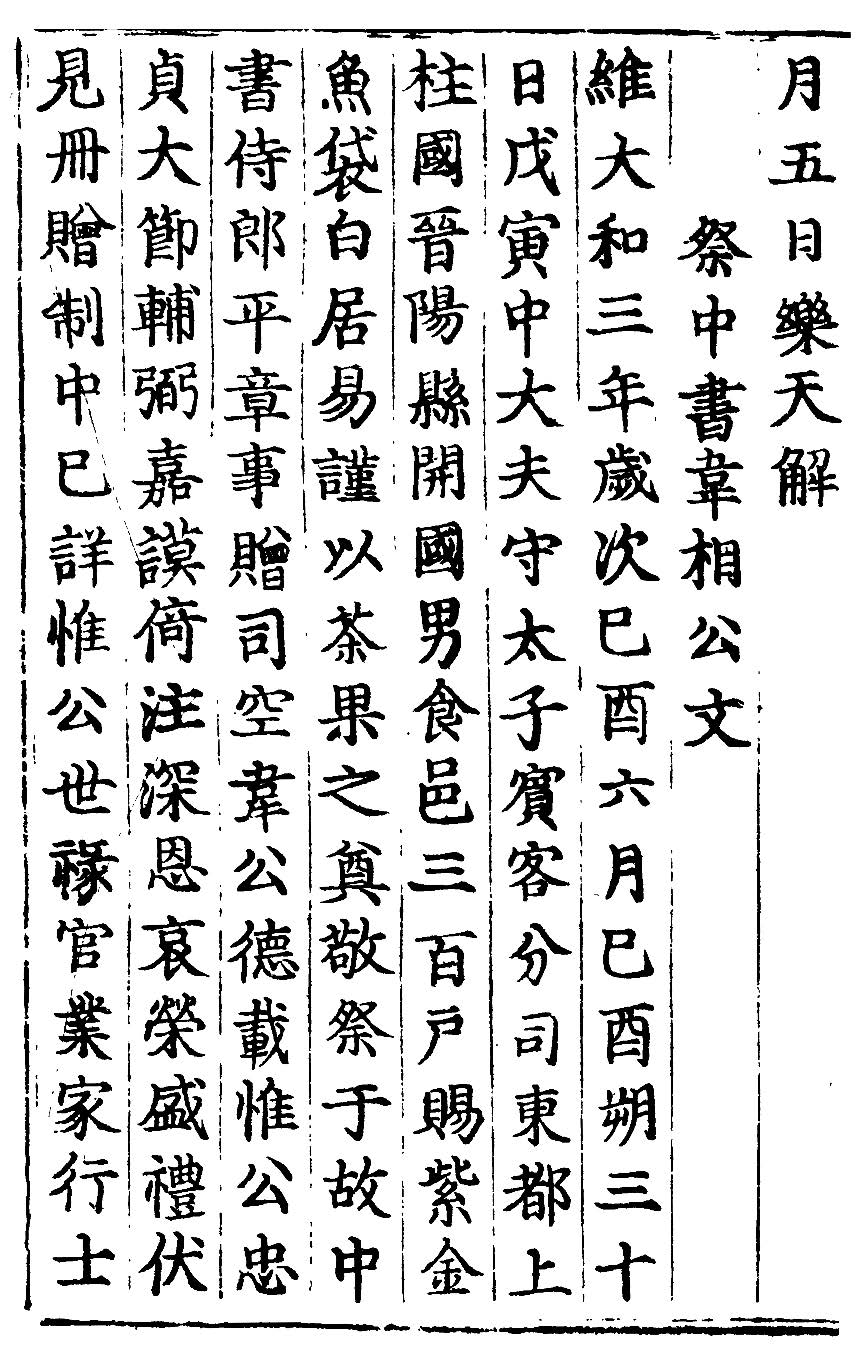 月五日樂天解
祭中書韋相公文
維大和三年歲次巳酉六月巳酉朔三十
日戊寅中大夫守太子賓客分司東都上
柱國晉陽縣開國男食邑三百戶賜紫金
魚袋白居易謹以茶果之奠敬祭于故中
書侍郎平章事贈司空韋公德載惟公忠
貞大節輔弼嘉謨倚注深恩哀榮盛禮伏
見冊贈制中巳詳惟公世祿官業家行士